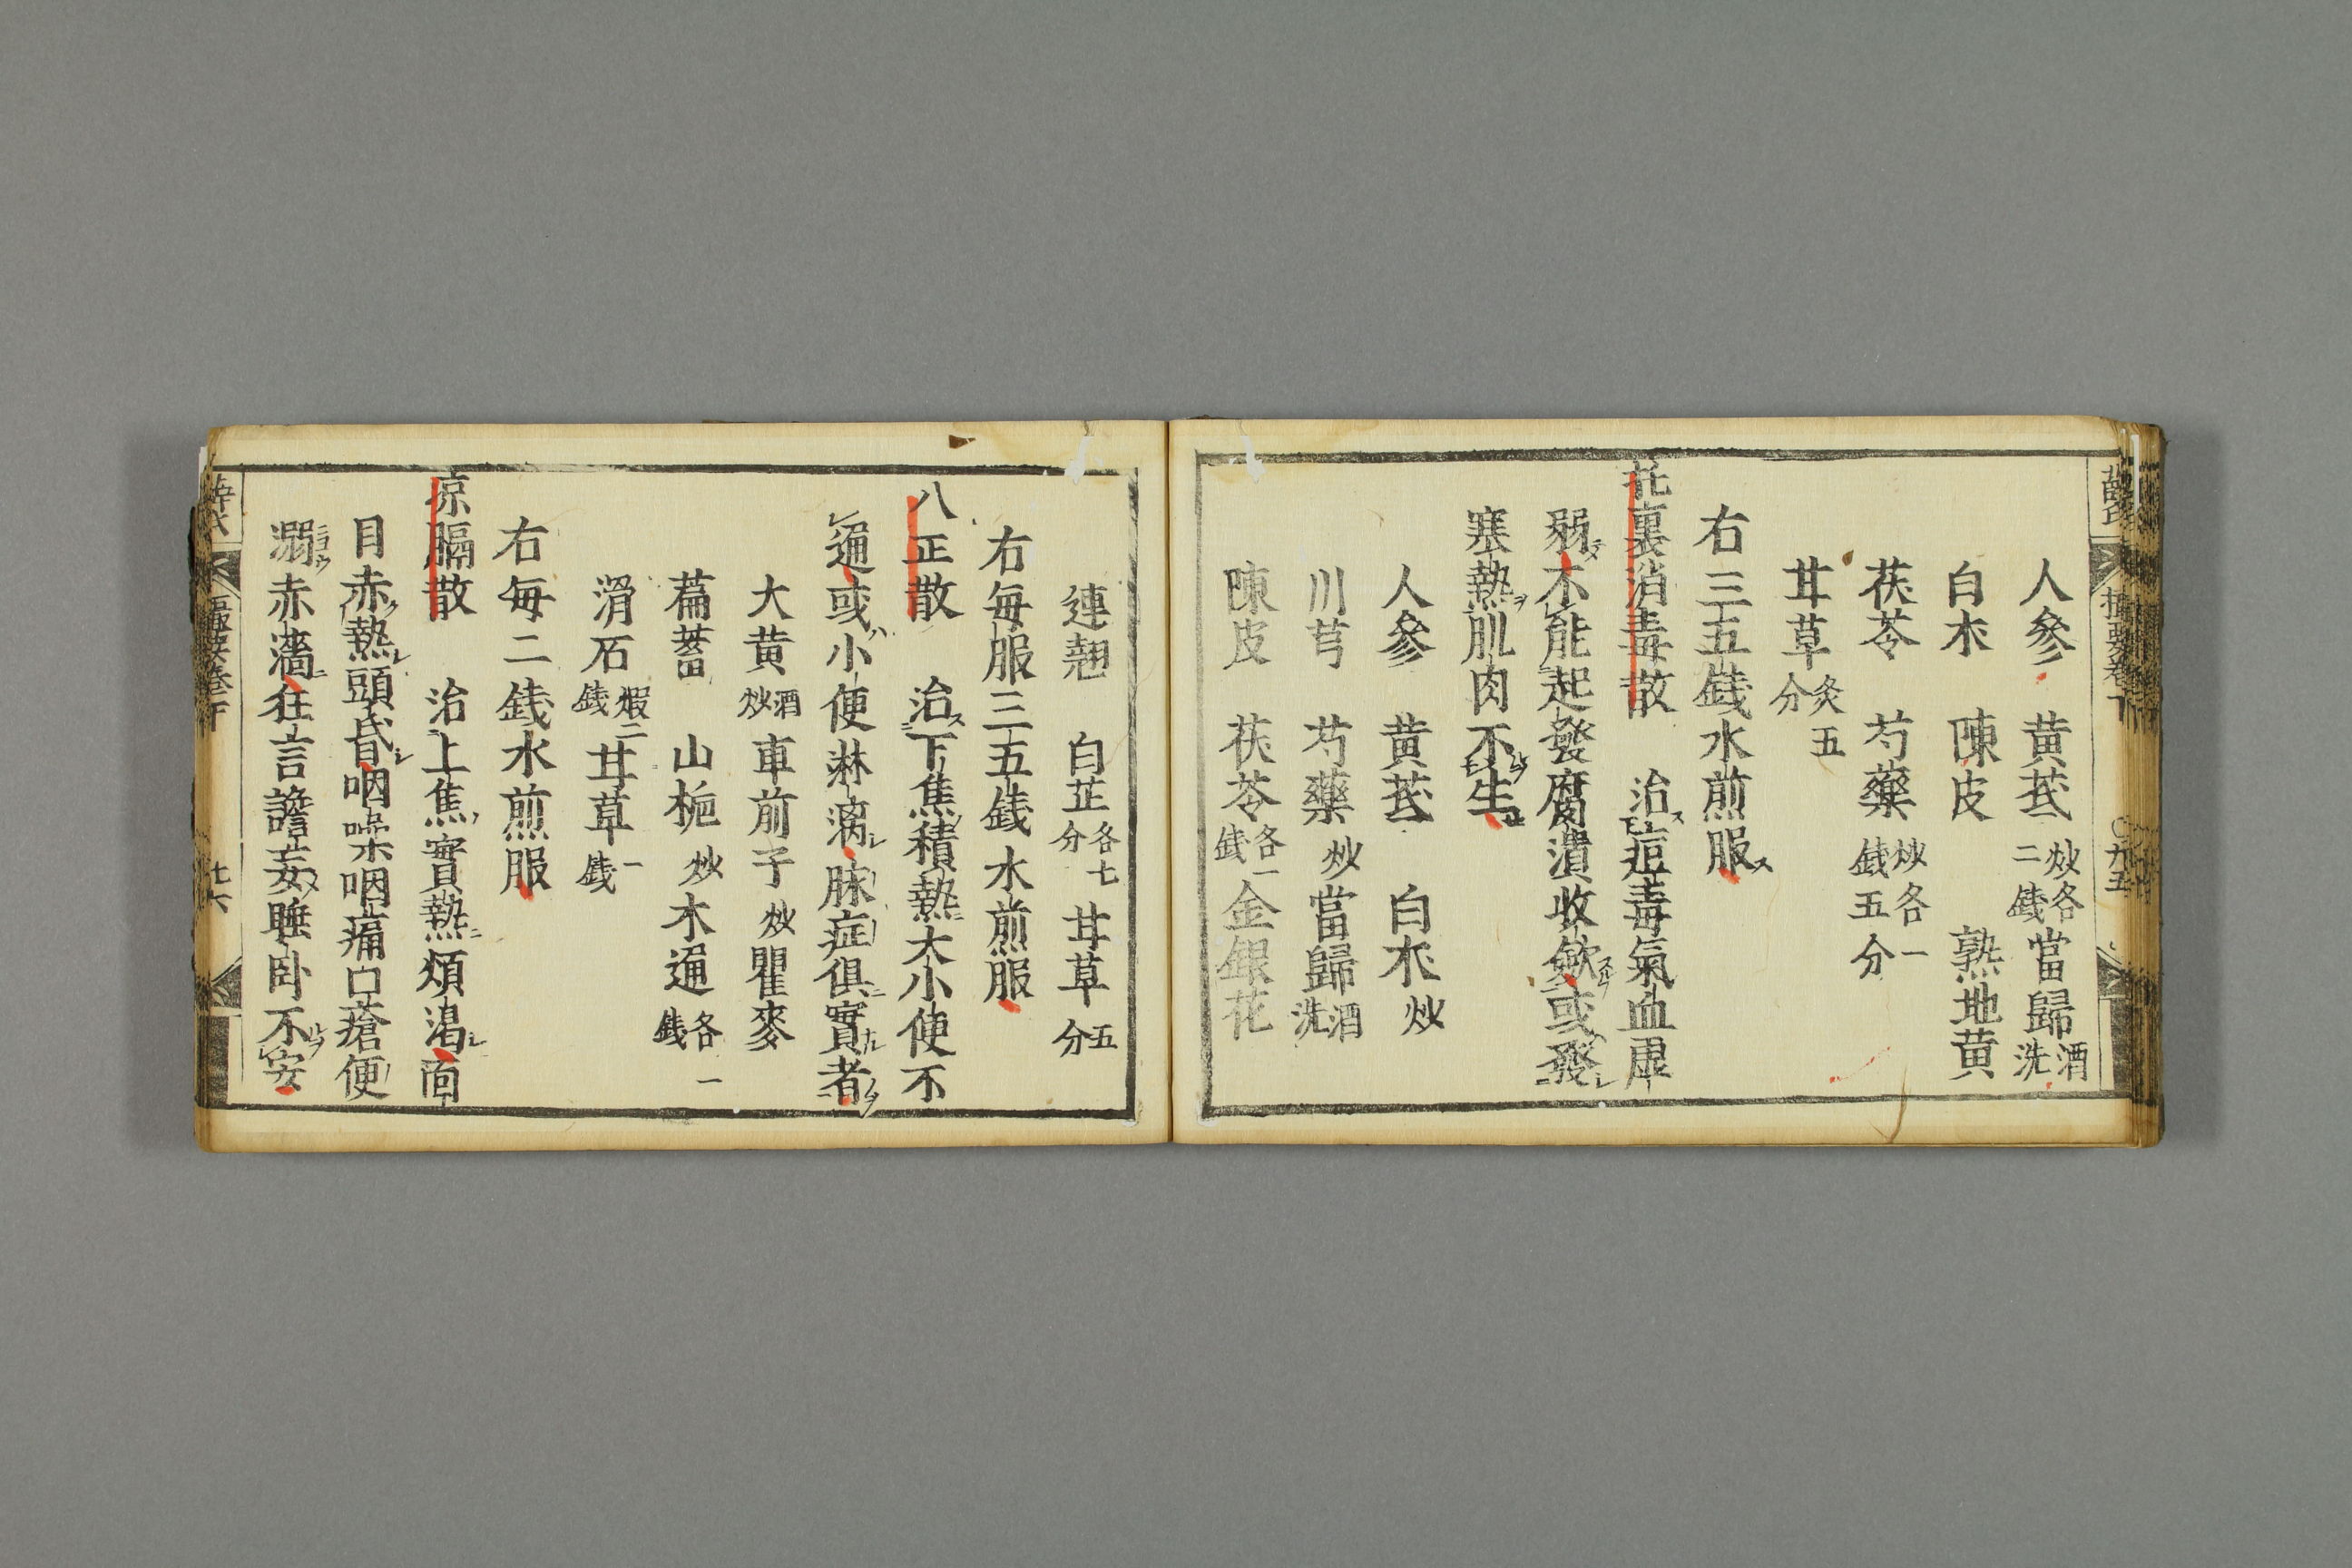 人參 黄芪炒各二錢當歸酒洗
白朮 陳皮 熟地黄
茯苓 芍藥炒各一錢五分
甘草炙五分
右三五錢水煎服ス
托裏消毒散 治ス痘毒氣血虚
弱不能起發腐潰收斂或發
寒熱肌肉不生
人參 黄芪 白朮炒
川芎 芍藥炒當歸酒洗
陳皮 茯苓各一錢金銀花
連翹 白芷各七分甘草五分
右毎服三五錢水煎服
八正散 治ス下焦積熱大小便不
通或小便淋漓脉症俱實者
大黄酒炒車前子炒瞿麥
萹蓄 山梔炒木通各一錢
滑石煆二錢甘草一錢
右毎二錢水煎服
凉膈散 治上焦實熱煩渴面
目赤熱頭昏咽燥咽痛口瘡便
溺赤濇狂言譫妄睡卧不安